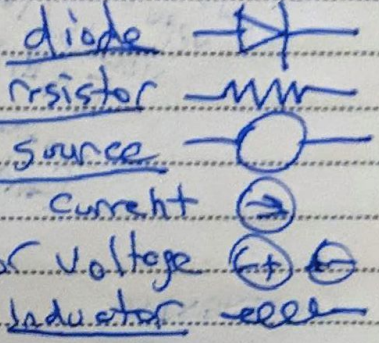 diode
resistor
source
current
or voltage
Inductor